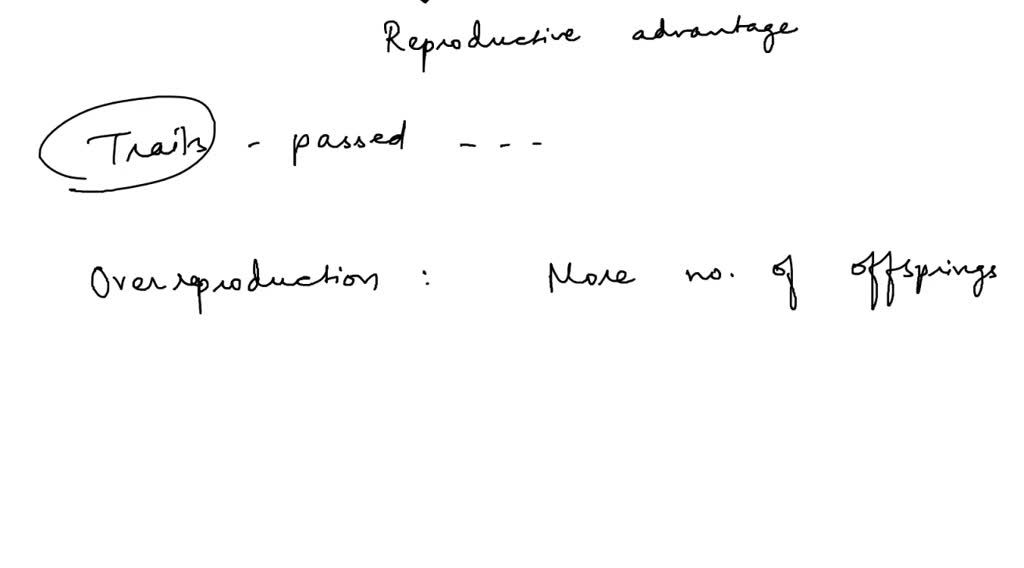 Reproductive advantage
Traits - passed - - -
Overreproduction : More no. of offsprings